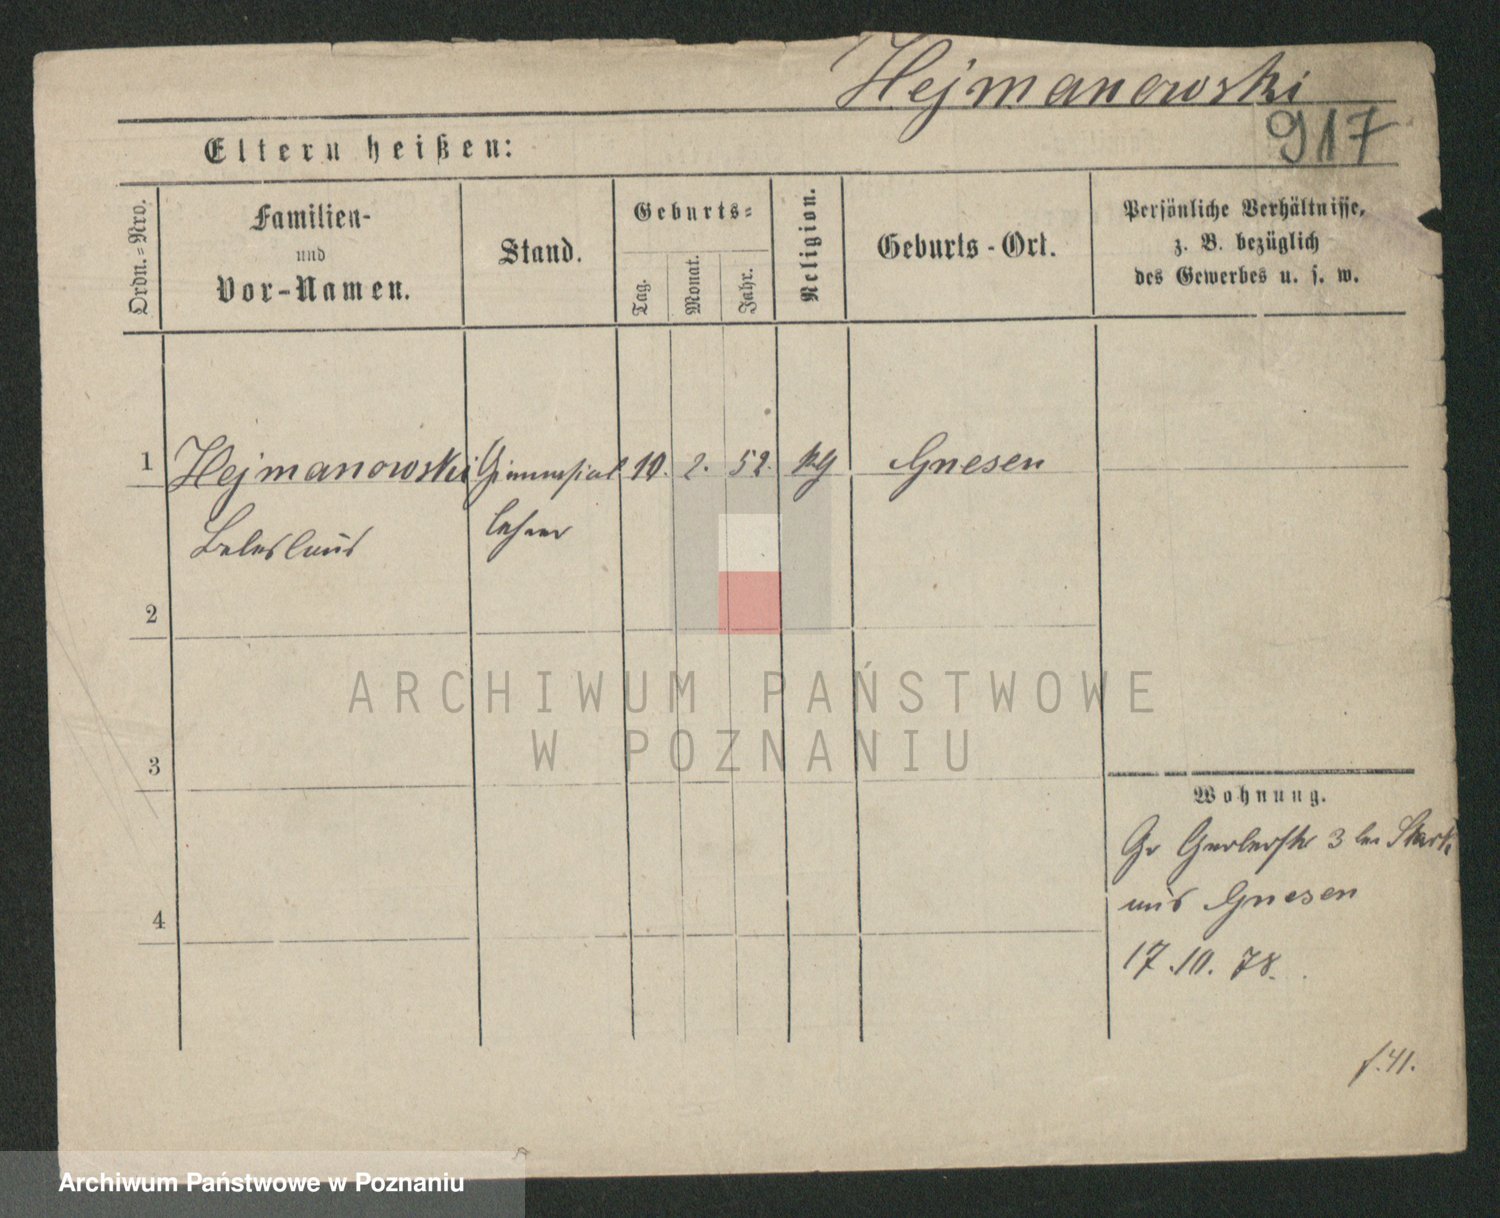 Hejmanowski
917
Eltern heißen:
Ordn.=Nro.
Familien-
und
Vor-Namen.
Stand.
Geburts=
Tag.
Monat.
Jahr.
Religion.
Geburts-Ort.
Persönliche Verhältnisse,
z. B. bezüglich
des Gewerbes u. s. w.
1 Hejmanowski Gimnasial 10. 2. 52. kg Gnesen
Boleslaus lehrer
2
3
4
Wohnung.
Gr Gerberstr 3 bei Stark
aus Gnesen
17.10.78.
f.41.
ARCHIWUM PAŃSTWOWE
W POZNANIU
Archiwum Państwowe w Poznaniu